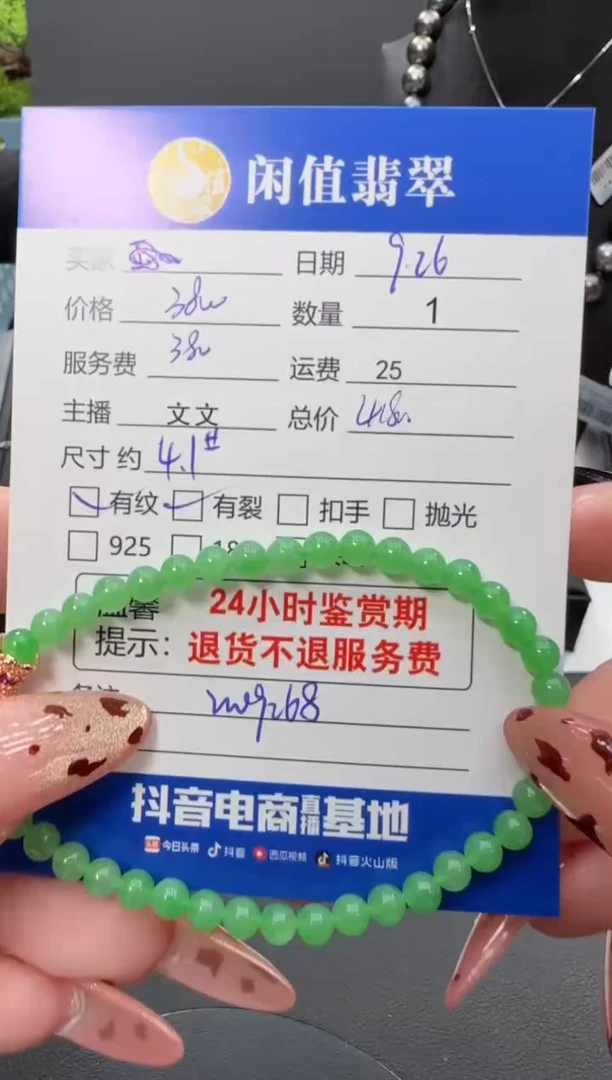 闲值翡翠
买家 日期 9.26
价格 38w 数量 1
服务费 38w 运费 25
主播 文文 总价
尺寸 约 4.1
有纹 有裂 扣手 抛光
925
温馨 24小时鉴赏期
提示: 退货不退服务费
备注 9268
抖音电商直播基地
今日头条 抖音 西瓜视频 抖音火山版